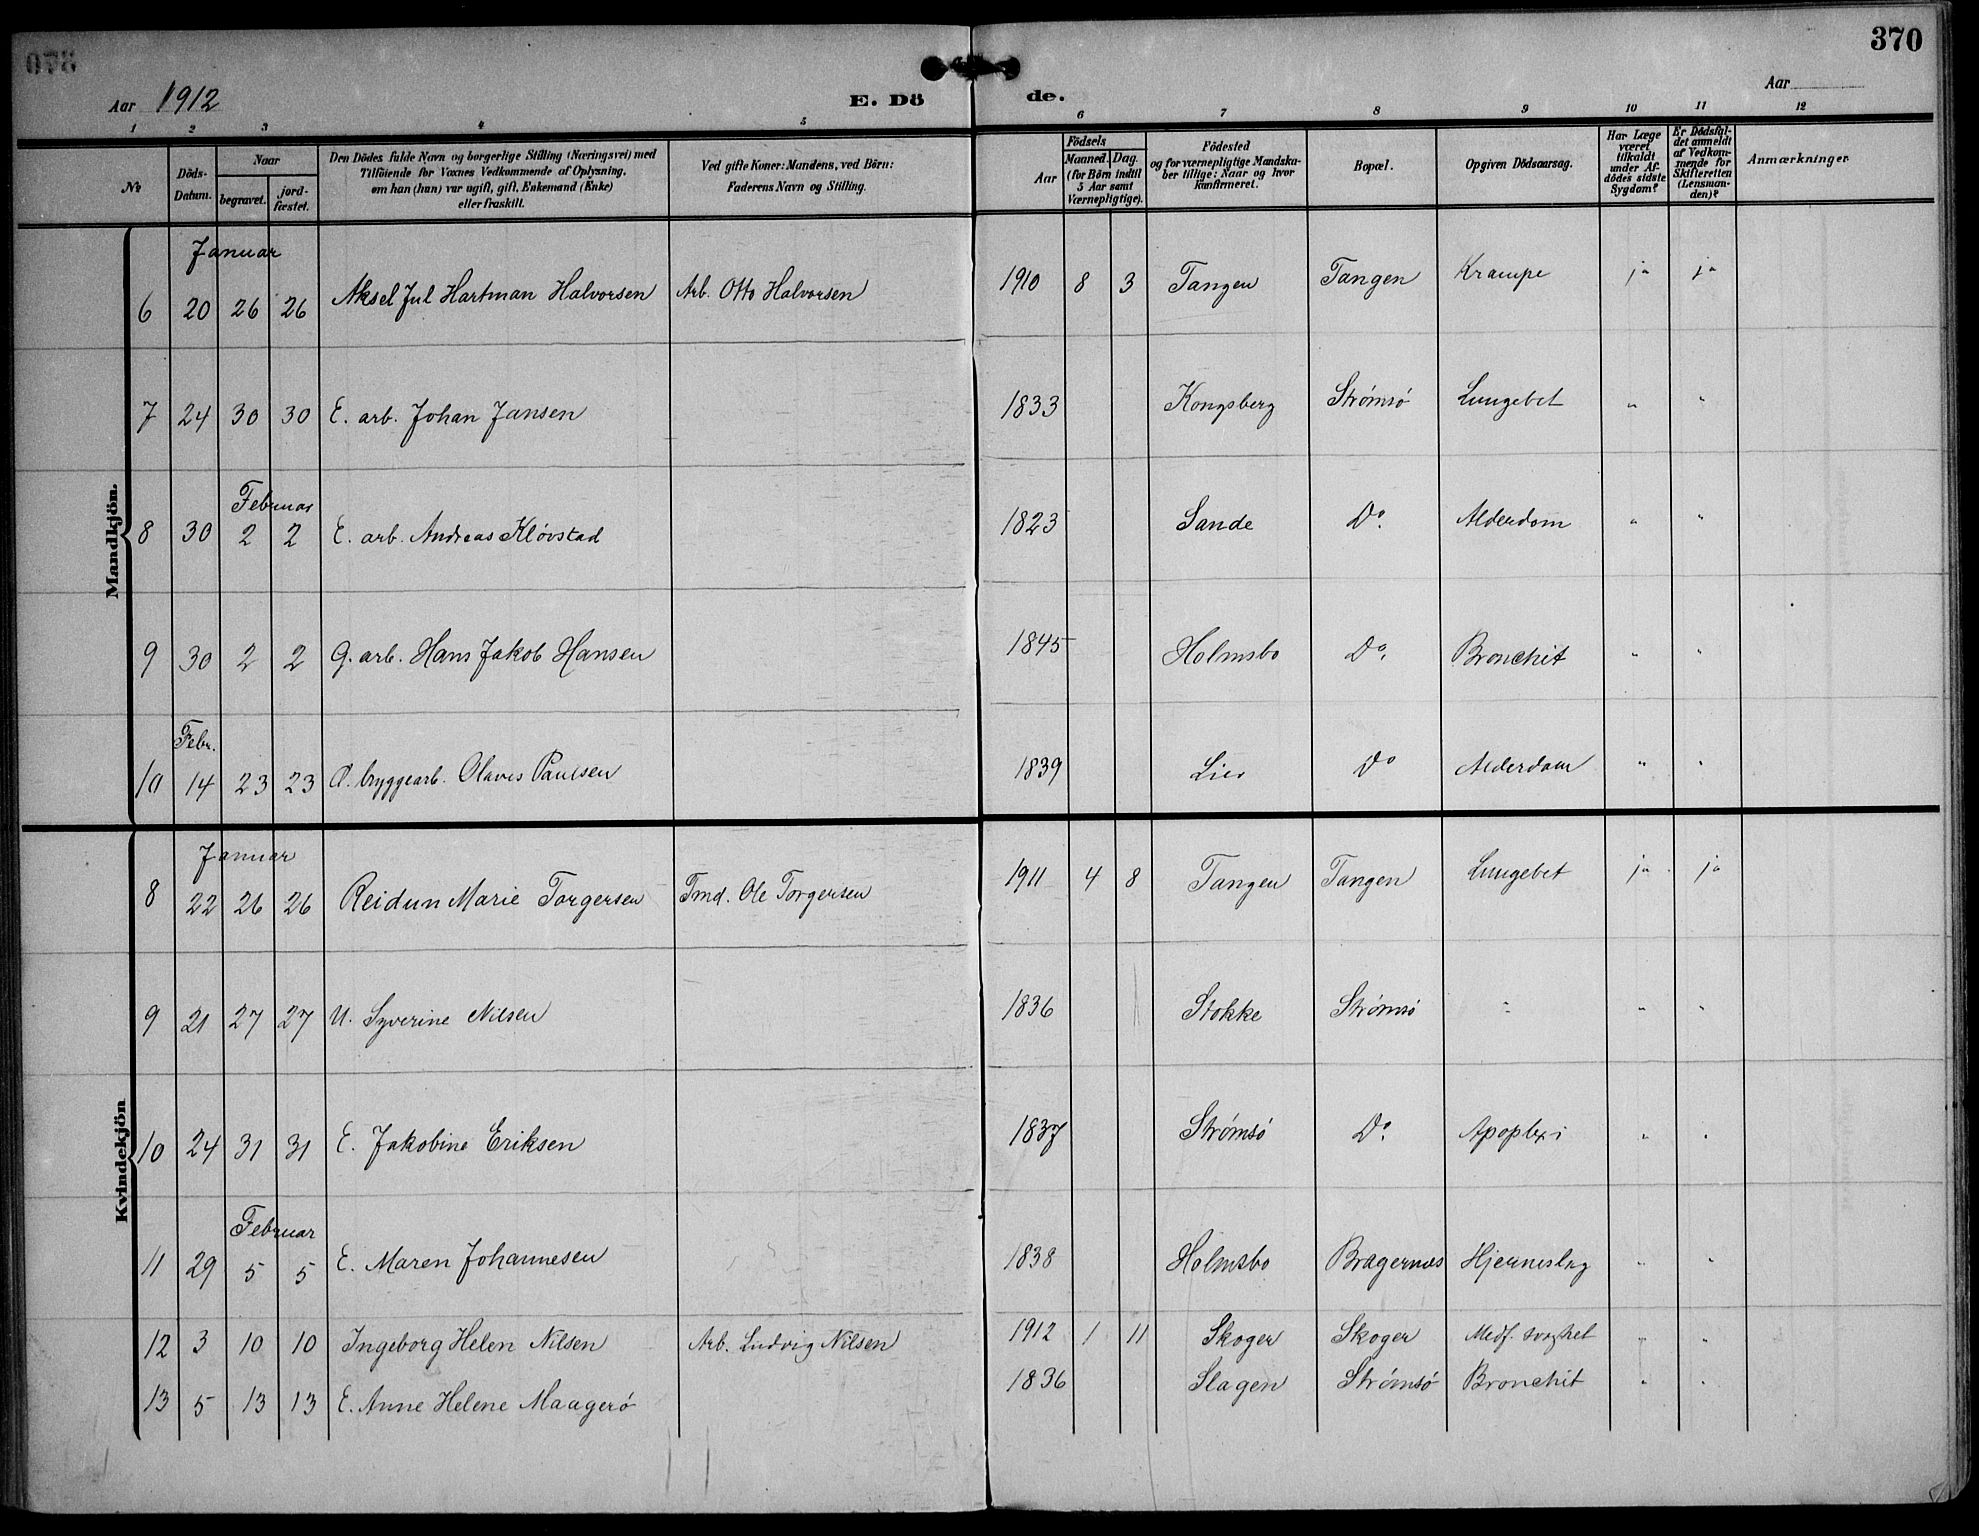 370
Aar 1912
E. Dö de.
Aar
1 2 3 4 5 6 7 8 9 10 11 12
No
Döds-Datum.
Naar
begravet.
jord-fæstet.
Den Dödes fulde Navn og borgerlige Stilling (Næringsvei) med
Tilföiende for Voxnes Vedkommende af Oplysning,
om han (hun) var ugift, gift, Enkemand (Enke)
eller fraskilt.
Ved gifte Koner: Mandens, ved Börn:
Faderens Navn og Stilling.
Födsels
Aar
Maaned. Dag.
(for Börn indtil
5 Aar samt
Værnepligtige).
Födested
og for værnepligtige Mandska-
ber tillige: Naar og hvor
konfirmeret.
Bopæl.
Opgiven Dödsaarsag.
Har Læge
været
tilkaldt
under Af-
dödes sidste
Sygdom?
Er Dödsfal-
det anmeldt
af Vedkom-
mende for
Skifteretten
(Lensman-
den)?
Anmærkninger
Mandkjön.
Januar
6 20 26 26 Aksel Jul Hartman Halvorsen Arb. Otto Halvorsen 1910 8 3 Tangen Tangen Krampe ja ja
7 24 30 30 E. arb. Johan Jansen 1833 Kongsberg Strømsø Lungebet " "
Februar
8 30 2 2 E. arb. Andreas Kløvstad 1823 Sande Do. Alderdom " "
9 30 2 2 G. arb. Hans Jakob Hansen 1845 Holmsbo Do. Bronchit " "
Febr.
10 14 23 23 bryggearb. Olaves Paulsen 1839 Lier Do Alderdom " "
Kvindekjön
Januar
8 22 26 26 Reidun Marie Torgersen Tmd. Ole Torgersen 1911 4 8 Tangen Tangen Lungebet ja ja
9 21 27 27 U. Syverine Nilsen 1836 Stokke Strømsø " " "
10 24 31 31 E. Jakobine Eriksen 1837 Strømsø Do. Apoplexi " "
Februar
11 29 5 5 E. Maren Johannesen 1838 Holmsbo Bragernæs Hjerneslag " "
12 3 10 10 Ingeborg Helen Nilsen Arb. Ludvig Nilsen 1912 1 11 Skoger Skoger Medf. svaghet " "
13 5 13 13 E. Anne Helene Maagerø 1836 Slagen Strømsø Bronchit " "